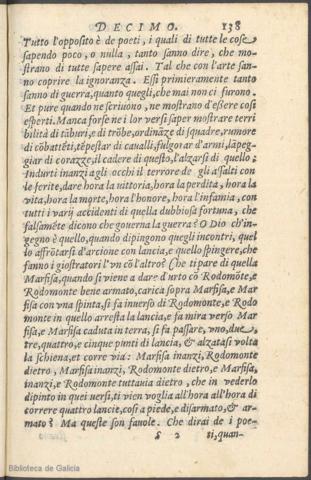 DECIMO. 138
Tutto l'opposito è de poeti, i quali di tutte le cose
sapendo poco, o nulla, tanto sanno dire, che mo-
strano di tutte sapere assai. Tal che con l'arte san-
no coprire la ignoranza. Essi primieramente tanto
sanno di guerra, quanto quegli, che mai non ci furono.
Et pure quando ne scriuono, ne mostrano d'essere cosi
esperti. Manca forse ne i lor versi saper mostrare terri
bilità di tāburi, e di trōbe, ordināze di squadre, rumore
di cōbattēti, tēpestar di caualli, fulgorar d'armi, lāpeg-
giar di corazze, il cadere di questo, l'alzarsi di quello;
Indurti inanzi agli occhi il terrore de gli assalti con
le ferite, dare hora la uittoria, hora la perdita, hora la
vita, hora la morte, hora l'honore, hora l'infamia, con
tutti i varij accidenti di quella dubbiosa fortuna, che
falsamēte dicono che gouerna la guerra? O Dio ch'in-
gegno è quello, quando dipingono quegli incontri, quel
lo affrōtarsi d'arcione con lancia, e quello spingere, che
fanno i giostratori l'vn cō l'altro? Che ti pare di quella
Marfisa, quando si viene a dare d'urto cō Rodomōte, e
Rodomonte bene armato, carica sopra Marfisa, e Mar
fisa con vna spinta, si fa inuerso di Rodomonte, e Rodo
monte in quello arresta la lancia, e fa mira verso Mar
fisa, e Marfisa caduta in terra, si fa passare, vno, due,
tre, quattro, e cinque punti di lancia, & alzatasi volta
la schiena, et corre via: Marfisa inanzi, Rodomonte
dietro, Marfisa inanzi, Rodomonte dietro, e Marfisa,
inanzi, e Rodomonte tuttauia dietro, che in vederlo
dipinto in quei uersi, ti vien voglia all'hora all'hora di
correre quattro lancie, cosi a piede, e disarmato, & ar-
mato? Ma queste son fauole. Che dirai de i poe-
S 2 ti, quan-
Biblioteca de Galicia